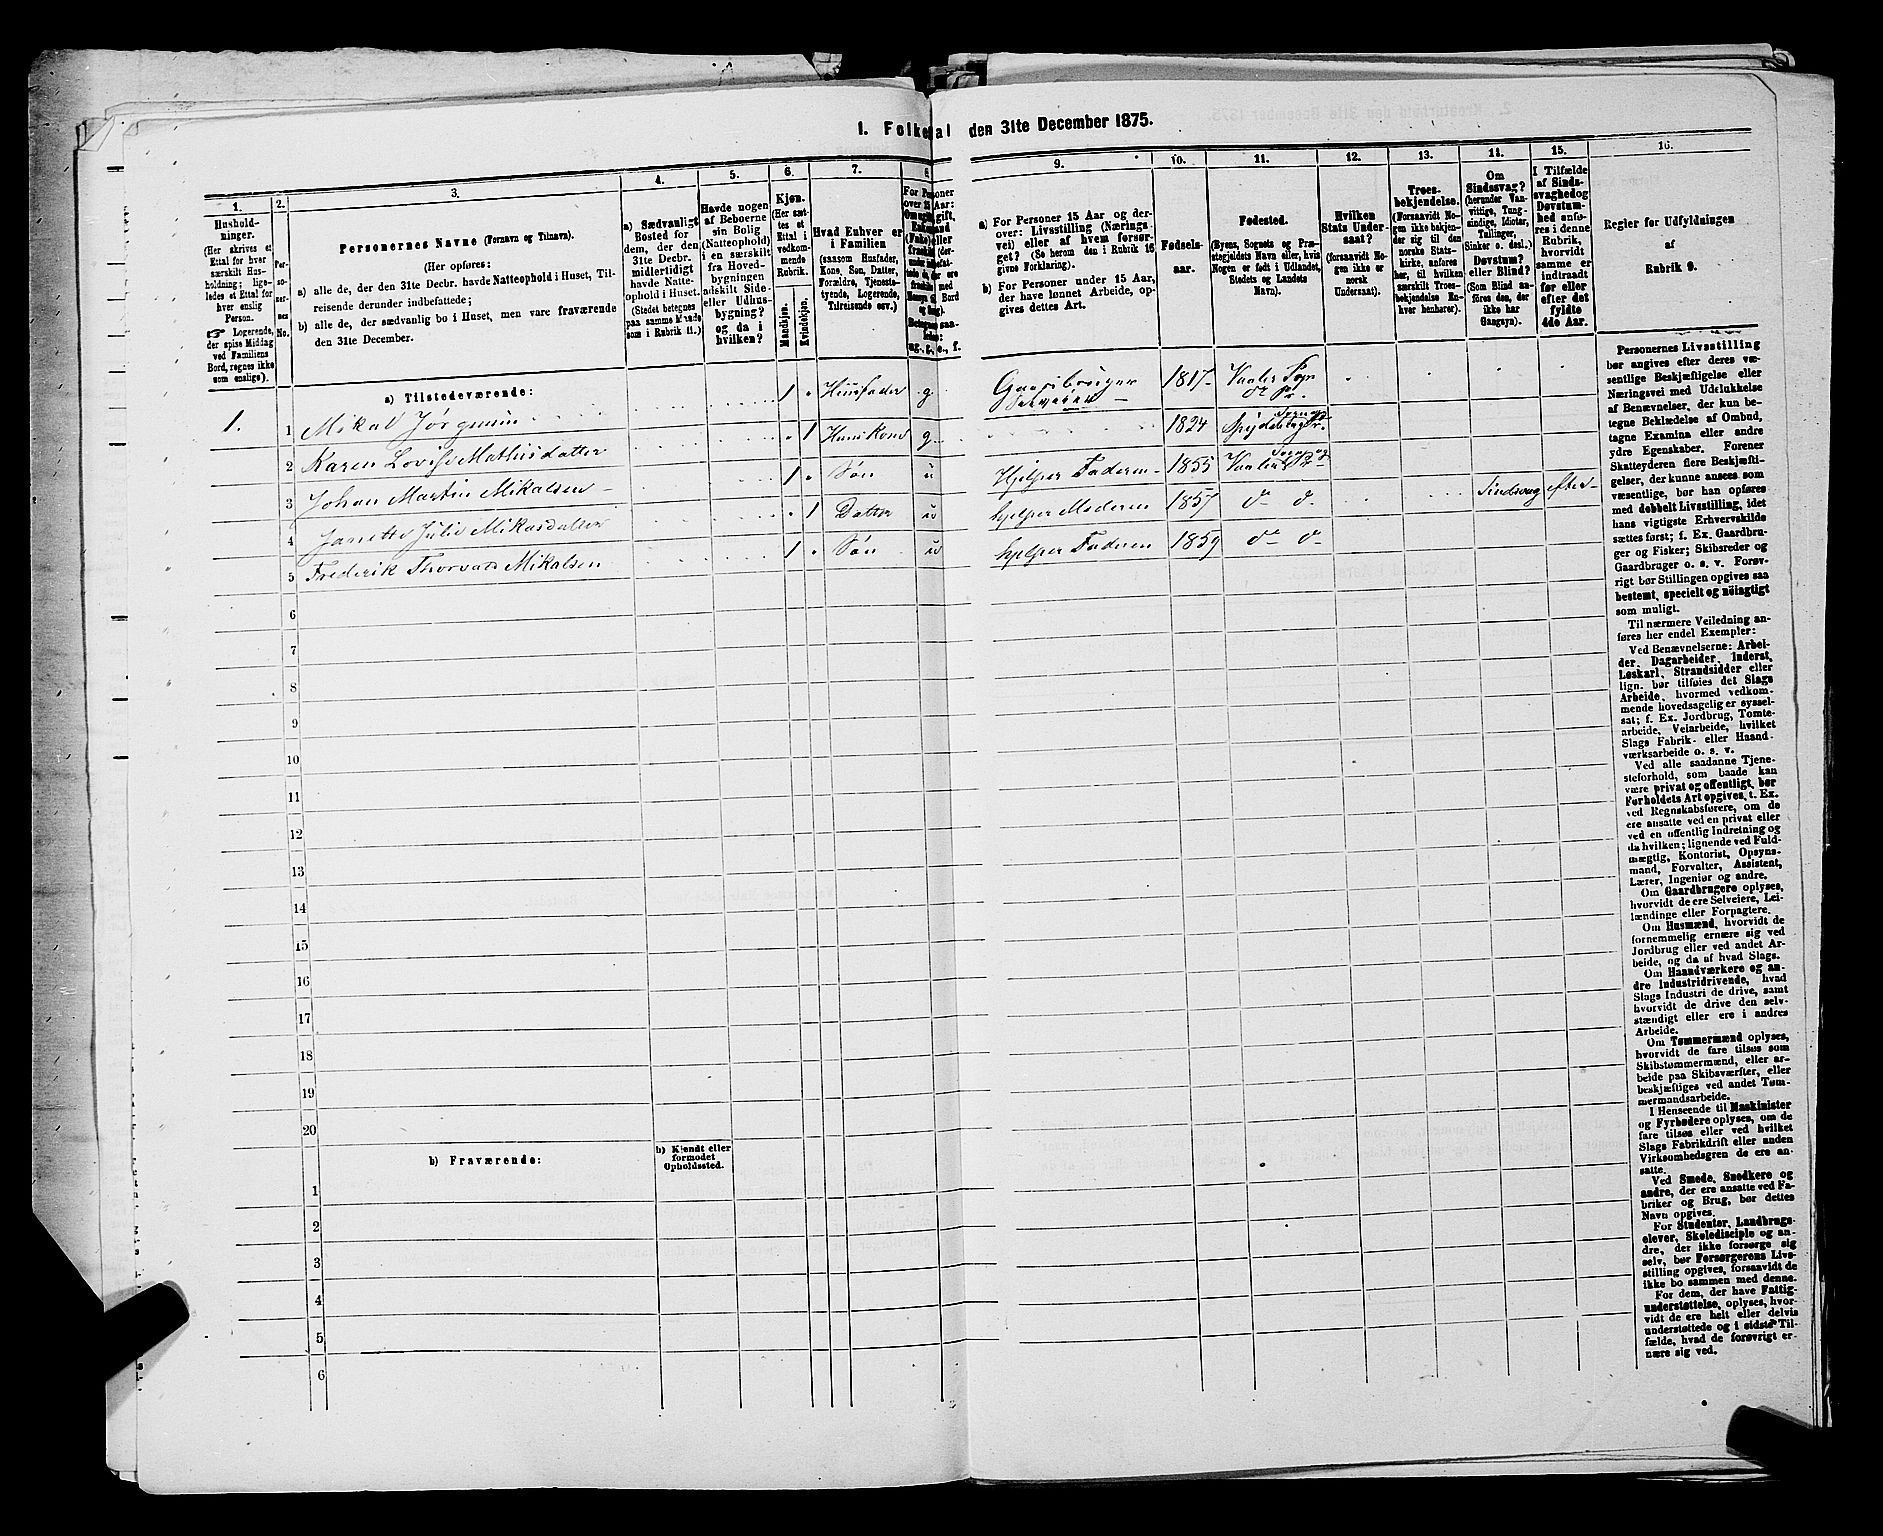 I. Folketal den 31te December 1875.
1.
Hushold-
ninger.
(Her skrives et
Ettal for hver
særskilt Hus-
holdning; lige-
ledes et Ettal for
hver enslig
Person.
Logerende,
der spise Middag
ved Familiens
Bord, regnes ikke
som enslige).
2.
Per-
so-
ner-
nes
No.
3.
Personernes Navne (Fornavn og Tilnavn).
(Her opføres:
a) alle de, der den 31te Decbr. havde Natteophold i Huset, Til-
reisende derunder indbefattede;
b) alle de, der sædvanlig bo i Huset, men vare fraværende
den 31te December.
4.
a) Sædvanligt
Bosted for
dem, der den
31te Decbr.
midlertidigt
havde Natte-
ophold i Huset.
(Stedet betegnes
paa samme Maade
som i Rubrik 11.)
5.
Havde nogen
af Beboerne
sin Bolig
(Natteophold)
i en særskilt
fra Hoved-
bygningen
adskilt Side-
eller Udhus-
bygning?
og da i
hvilken?
6.
Kjøn.
(Her sæt-
tes et
Ettal i
vedkom-
mende
Rubrik.
Mandkjøn.
Kvindekjøn.
7.
Hvad Enhver er
i Familien
(saasom Husfader,
Kone, Søn, Datter,
Forældre, Tjeneste-
tyende, Logerende,
Tilreisende osv.)
8.
For Personer
over 15 Aar:
9.
a) For Personer 15 Aar og der-
over: Livsstilling (Nærings-
vei) eller af hvem forsør-
get? (Se herom den i Rubrik 16
givne Forklaring).
b) For Personer under 15 Aar,
der have lønnet Arbeide, op-
gives dettes Art.
10.
Fødsels-
aar.
11.
Fødested.
(Byens, Sognets og Præ-
stegjeldets Navn eller, hvis
Nogen er født i Udlandet,
Stedets og Landets
Navn).
12.
Hvilken
Stats Under-
saat?
(forsaavidt No-
gen ikke er
norsk
Undersaat).
13.
Troes-
bekjendelse.
(Forsaavidt No-
gen ikke bekjen-
der sig til den
norske Stats-
kirke, anføres
her, til hvilken
særskilt Troes-
bekjendelse En-
hver henhører).
14.
Om
Sindssvag?
(herunder Van-
vittige, Tung-
sindige, Idioter,
Tullinger,
Sinker o. desl.)
Døvstum?
eller Blind?
(Som Blind an-
føres den, der
ikke har
Gangsyn).
15.
I Tilfælde
af Sinds-
svaghed og
Døvstum-
hed anfø-
res i denne
Rubrik,
hvorvidt
samme er
indtraadt
før eller
efter det
fyldte
4de Aar.
16.
Regler for Udfyldningen
af
Rubrik 9.
a) Tilstedeværende:
1. 1 Mikal Jørgensen 1 Huusfader g. Gaardbruger Selveier 1817 Vaaler Sogn
2 Karen Lovise Mathisdatter 1 Huuskone g. 1824 Spydeberg
3 Johan Martin Mikalsen 1 Søn u Hjelper Faderen 1855 Vaaler
4 Janette Julie Mikasdatter 1 Datter u hjelper Moderen 1857 do do Sindsvag efter
5 Frederik Thorvald Mikalsen 1 Søn u hjelper Faderen 1859 do do
6
7
8
9
10
11
12
13
14
15
16
17
18
19
20
b) Fraværende:
b) Kjendt eller
formodet
Opholdssted.
1
2
3
4
5
6
Personernes Livsstilling
bør angives efter deres væ-
sentlige Beskjæftigelse eller
Næringsvei med Udelukkelse
af Benævnelser, der kun be-
tegne Beklædelse af Ombud,
tagne Examina eller andre
ydre Egenskaber. Forener
Skatteyderen flere Beskjæfti-
gelser, der kunne ansees som
væsentlige, bør han opføres
med dobbelt Livsstilling, idet
hans vigtigste Erhvervskilde
sættes først; f. Ex. Gaardbru-
ger og Fisker; Skibsreder og
Gaardbruger o. s. v. Forøv-
rigt bør Stillingen opgives saa
bestemt, specielt og nöiagtigt
som muligt.
Til nærmere Veiledning an-
føres her endel Exempler:
Ved Benævnelserne: Arbei-
der, Dagarbeider, Inderst,
Løskarl, Strandsidder eller
lign. bør tilføies det Slags
Arbeide, hvormed vedkom-
mende hovedsagelig er syssel-
sat; f. Ex. Jordbrug, Tomte-
arbeide, Veiarbeide, hvilket
Slags Fabrik- eller Haand-
værksarbeide o. s. v.
Ved alle saadanne Tjene-
steforhold, som baade kan
være privat og offentligt, bør
Forholdets Art opgives, t. Ex.
ved Regnskabsførere, om de
ere ansatte ved en privat eller
ved en offentlig Indretning og
da hvilken; lignende ved Fuld-
mægtig, Kontorist, Opsyns-
mand, Forvalter, Assistent,
Lærer, Ingeniør og andre.
Om Gaardbrugere oplyses,
hvorvidt de ere Selveiere, Lei-
lændinge eller Forpagtere.
Om Husmænd, hvorvidt de
fornemmelig ernære sig ved
Jordbrug eller ved andet Ar-
beide, og da af hvad Slags.
Om Haandværkere og an-
dre Industridrivende, hvad
Slags Industri de drive, samt
hvorvidt de drive den selv-
stændigt eller ere i andres
Arbeide.
Om Tømmermænd oplyses,
hvorvidt de fare tilsøs som
Skibstømmermænd, eller ar-
beide paa Skibsværfter, eller
beskjæftiges ved andet Tøm-
mermandsarbeide.
I Henseende til Maskinister
og Fyrbødere oplyses, om de
fare tilsøs eller ved hvilket
Slags Fabrikdrift eller anden
Virksomhedsgren de ere an-
satte.
Ved Smede, Snedkere og
andre, der ere ansatte ved Fa-
briker og Brug, bør dettes
Navn opgives.
For Studenter, Landbrugs-
elever, Skoledisciple og an-
dre, der ikke forsørge sig
selv, bør Forsørgerens Livs-
stilling opgives, forsaavidt de
ikke bo sammen med denne.
For dem, der have Fattig-
understøttelse, oplyses, hvor-
vidt de ere helt eller delvis
understøttede og i sidste Til-
fælde, hvad de forøvrigt er-
nære sig ved.